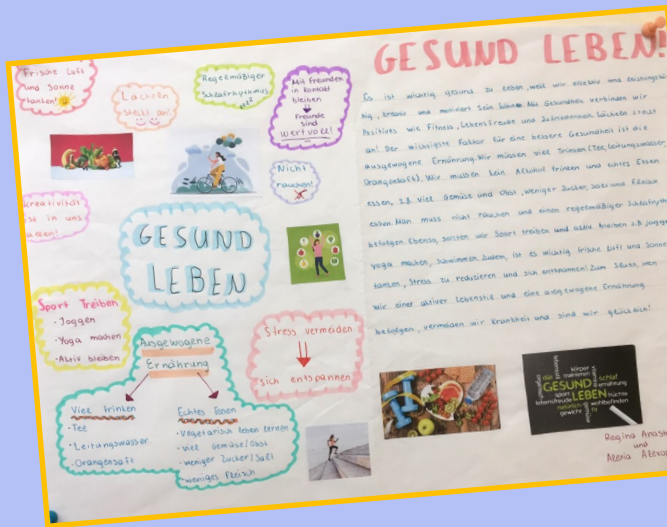 Frische Luft
und Sonne
tanken!
Lächeln
steckt an!
Regelmäßiger
Schlafrhythmus
Mit Freunden
in Kontakt
bleiben
Freunde
sind
wertvoll!
Nicht
rauchen!
Kreativität
ist in uns
allen!
GESUND
LEBEN
Sport Treiben
• Joggen
• Yoga machen
• Aktiv bleiben
Ausgewogene
Ernährung
Viel trinken
• Tee
• Leitungswasser
• Orangensaft
Echtes Essen
• Vegetarisch leben lernen
• viel Gemüse/Obst
• weniger Zucker/Salz
• weniges Fleisch
Stress vermeiden
sich entspannen
GESUND LEBEN!
Es ist wichtig gesund zu leben, weil wir effektiv und leistungsfä
hig, kreativ und motiviert sein können. Mit Gesundheit verbinden wir
Positives wie Fitness, Lebensfreude und Zufriedenheit. Lächeln steckt
an! Der wichtigste Faktor für eine bessere Gesundheit ist die
ausgewogene Ernährung. Wir müssen viel Trinken (Tee, Leitungswasser,
Orangensaft). Wir müssen kein Alkohol trinken und echtes Essen
essen, z.B viel Gemüse und Obst, weniger Zucker, Salz und Fleisch
essen. Man muss nicht rauchen und einen regelmäßiger Schlafrhythmus
befolgen. Ebenso, sollten wir Sport treiben und aktiv bleiben z.B joggen
yoga machen, schwimmen. Zudem, ist es wichtig frische Luft und Sonne
tanken, Stress zu reduzieren und sich entspannen! Zum Schluss,
wir einer aktiver Lebensstil und eine ausgewogene Ernährung
befolgen, vermeiden wir Krankheit und sind wir glücklich!
körper
trainieren
schlaf
GESUND
sport
ernährung
LEBEN
früchte
lebensfreude
natürlich
wohlbefinden
gewicht
fit
Regina
und
Alexia